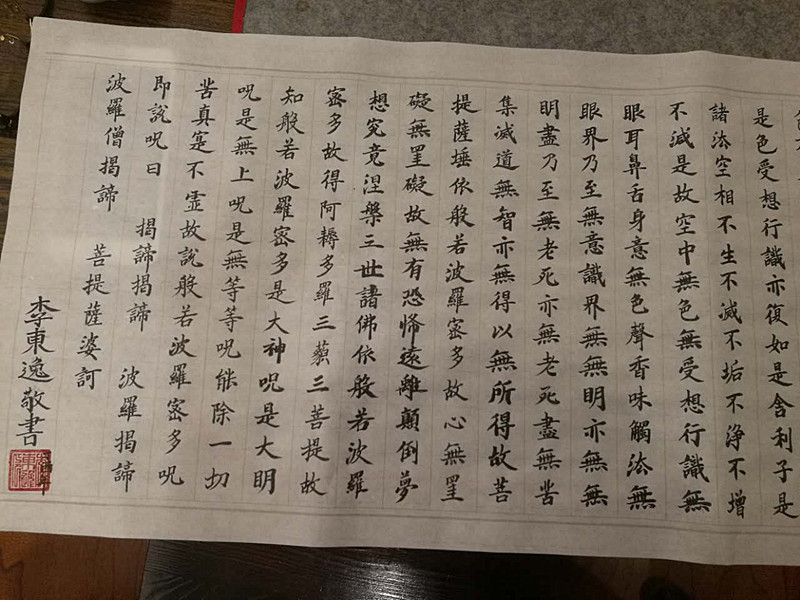 是色受想行識亦復如是舍利子是
諸法空相不生不滅不垢不淨不增
不滅是故空中無色無受想行識無
眼耳鼻舌身意無色聲香味觸法無
眼界乃至無意識界無無明亦無無
明盡乃至無老死亦無老死盡無苦
集滅道無智亦無得以無所得故菩
提薩埵依般若波羅密多故心無罣
礙無罣礙故無有恐怖遠離顛倒夢
想究竟涅槃三世諸佛依般若波羅
密多故得阿耨多羅三藐三菩提故
知般若波羅密多是大神呪是大明
呪是無上呪是無等等呪能除一切
苦真寔不虛故說般若波羅密多呪
即說呪曰 揭諦揭諦 波羅揭諦
波羅僧揭諦 菩提薩婆訶
李東逸敬書